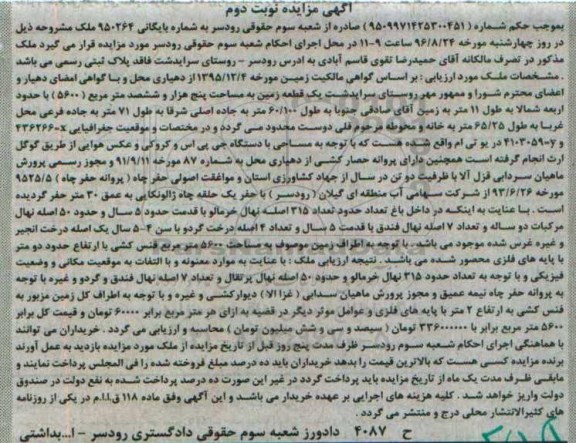 آگهی مزایده نوبت دوم
بموجب حکم شماره ( ۹۵۰۹۹۷۱۴۲۵۳۰۰۴۵۱) صادره از شعبه سوم حقوقی رودسر به شماره بایگانی ۹۵۰۲۶۴ ملک مشروحه ذیل
در روز چهارشنبه مورخه ۹۶/۸/۲۴ ساعت ۹-۱۱ در محل اجرای احکام شعبه سوم حقوقی رودسر مورد مزایده قرار می گیرد ملک
مذکور در تصرف مالکانه آقای حمیدرضا تقوی قاسم آبادی به ادرس رودسر - روستای سرایدشت فاقد پلاک ثبتی رسمی می باشد
. مشخصات ملک مورد ارزیابی : بر اساس گواهی مالکیت زمین مورخه ۱۳۹۵/۱۲/۴ از دهیاری محل و با گواهی امضای دهیار و
اعضای محترم شورا و ممهور مهر روستای سرایدشت یک قطعه زمین به مساحت پنج هزار و ششصد متر مربع (۵۶۰۰ ) با حدود
اربعه شمالا به طول ۱۱ متر به زمین آقای صادقی جنوبا به طول ۶۰/۱۰۰ متر به جاده اصلی شرقا به طول ۷۱ متر به جاده فرعی محل
غربا به طول ۶۵/۲۵ متر به خانه و محوطه مرحوم قلی دوست محدود می گردد و در مختصات و موقعیت جغرافیایی ۴۳۶۲۶۶۰-x
و ۴۱۰۳۰۵۹-y در یو تی ام واقع شده است که با توجه به مساحی با دستگاه جی پی اس و کروکی و عکس هوایی از طریق گوگل
ارث انجام گرفته است همچنین دارای پروانه حصار کشی از دهیاری محل به شماره ۸۷ مورخه ۹۱/۹/۱۱ و مجوز رسمی پرورش
ماهیان سردابی قزل آلا با ظرفیت دو تن در سال از جهاد کشاورزی استان و موافقت اصولی حفر چاه ( پروانه حفر چاه ) ۹۵۲۵/۵
مورخه ۹۳/۶/۲۶ از شرکت سهامی آب منطقه ای گیلان (رودسر ) با حفر یک حلقه چاه ژالونکایی به عمق ۳۰ متر حفر گردیده
است . با عنایت به اینکه در داخل باغ تعداد حدود تعداد ۳۱۵ اصله نهال خرمالو با قدمت حدود ۵ سال و حدود ۵۰ اصله نهال
مرکبات دو ساله و تعداد ۷ اصله نهال فندق با قدمت ۵ سال و تعداد ۴ اصله درخت گردو با سن ۴-۵ سال یک اصله درخت انجیر
و غیره غرس شده موجود می باشد . با توجه به اطراف زمین موصوف به مساحت ۵۶۰۰ متر مربع فنس کشی با ارتفاع حدود دو متر
با پایه های فلزی محصور شده می باشد . نتیجه ارزیابی ملک : با عنایت به موارد معنونه و با التفات به موقعیت مکانی و وضعیت
فیزیکی و با توجه به تعداد حدود ۳۱۵ نهال خرمالو و حدود ۵۰ اصله نهال پرتقال و تعداد ۷ اصله نهال فندق و گردو و غیره با توجه
به پروانه حفر چاه نیمه عمیق و مجوز پرورش ماهیان سردابی ( غزا الا ) دیوارکشی و غیره و با توجه به اطراف کل زمین مزبور به
فنس کشی به ارتفاع ۲ متر با پایه های فلزی و عوامل موثر دیگر در قضیه به ازای هر متر مربع برابر ۶۰۰۰۰ تومان و قیمت کل برابر
۵۶۰۰ متر مربع برابر با ۳۳۶۰۰۰۰۰۰ تومان ( سیصد و سی و شش میلیون تومان ) محاسبه و ارزیابی می گردد . خریداران می توانند
با هماهنگی اجرای احکام شعبه سوم رودسر ظرف مدت پنج روز قبل از تاریخ مزایده از ملک مورد مزایده بازدید به عمل آورند
برنده مزایده کسی هست که بالاترین قیمت را بدهد خریداران باید ده درصد مبلغ فروخته شده را فی المجلس پرداخت نمایند و
مابقی ظرف مدت یک ماه از تاریخ مزایده باید پرداخت گردد در غیر این صورت ده درصد پرداخت شده به نفع دولت در صندوق
دولت واریز خواهد شد . کلیه هزینه های اجرایی بر عهده خریدار می باشد و این آگهی وفق ماده ۱۱۸ ق.ا.م در یکی از روزنامه
های کثیرالانتشار محلی درج و منتشر می گردد .
ح ۴۰۸۷ دادورز شعبه سوم حقوقی دادگستری رودسر - ا...بداشتی